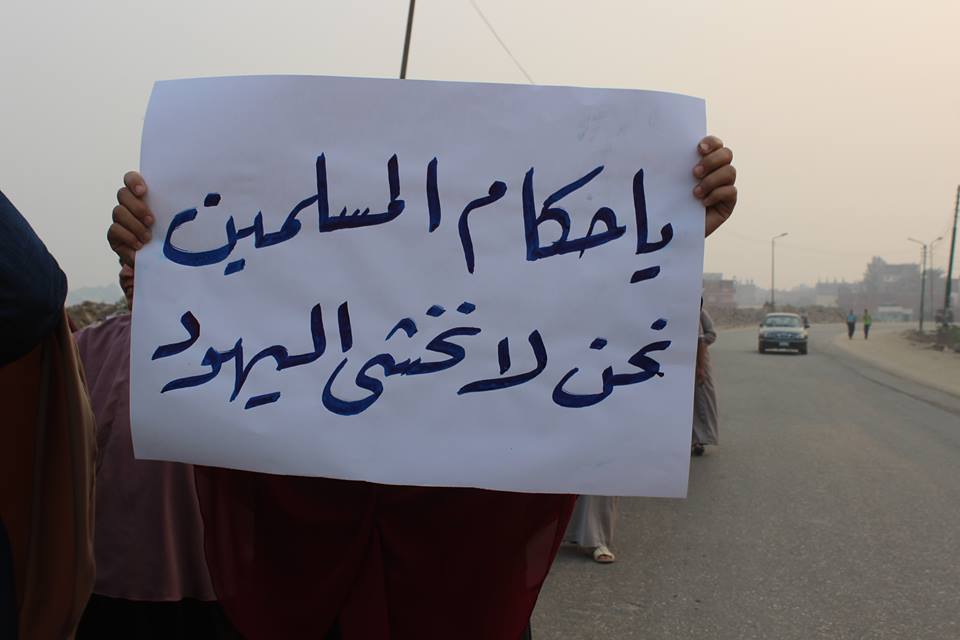 يا حكام المسلمين
نحن لا نخشى اليهود